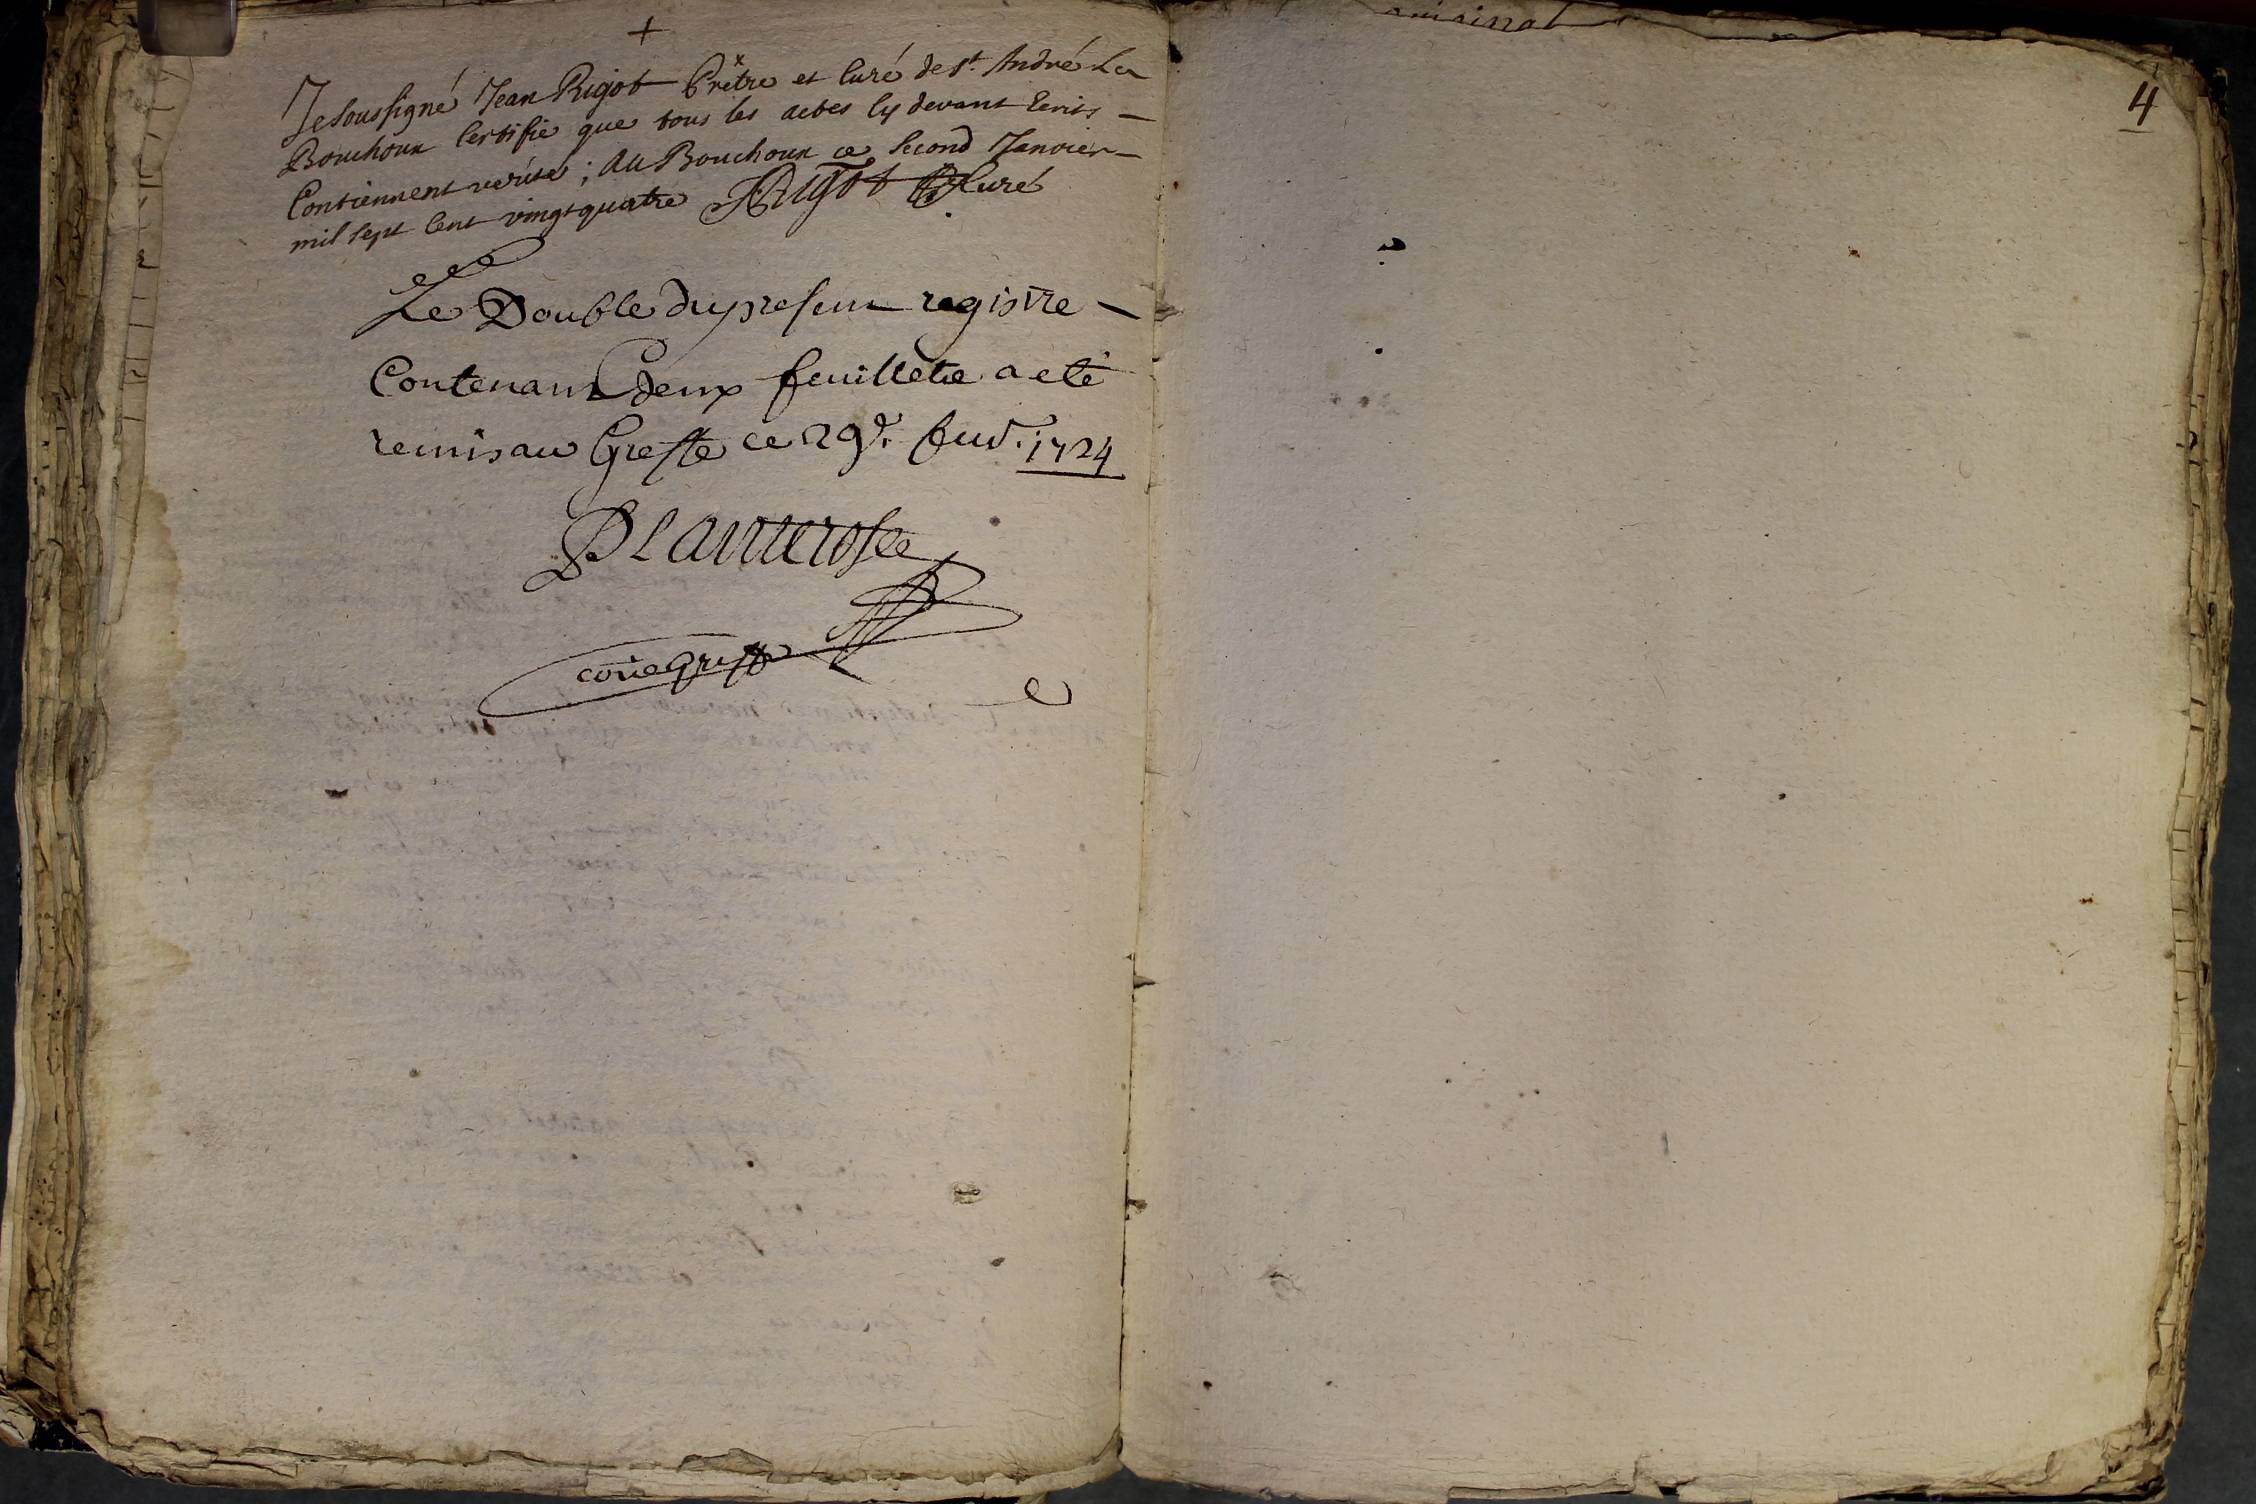 +
Je soussigné Jean Rigot Prêtre et Curé de St. André Le
Bouchoux Certifie que tous les actes Cy devant Ecrits -
Contiennent verité ; Au Bouchoux ce Second Janvier -
mil Sept Cent vingt quatre JRigot Curé
Le Double du present registre -
Contenant deux feuillets a eté
remis au Greffe ce 29e. feuv. 1724
Planterose
original
4